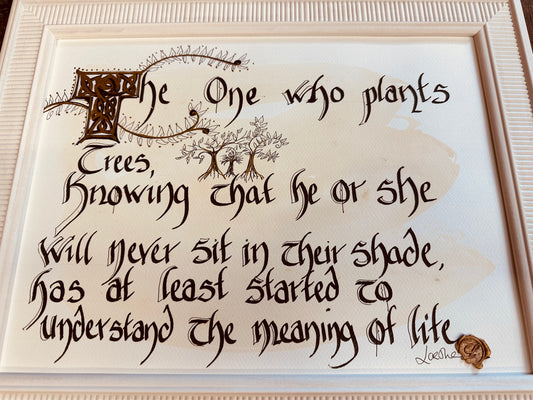 The One who plants
Trees,
Knowing that he or she
will never sit in their shade,
has at least started to
understand the meaning of life